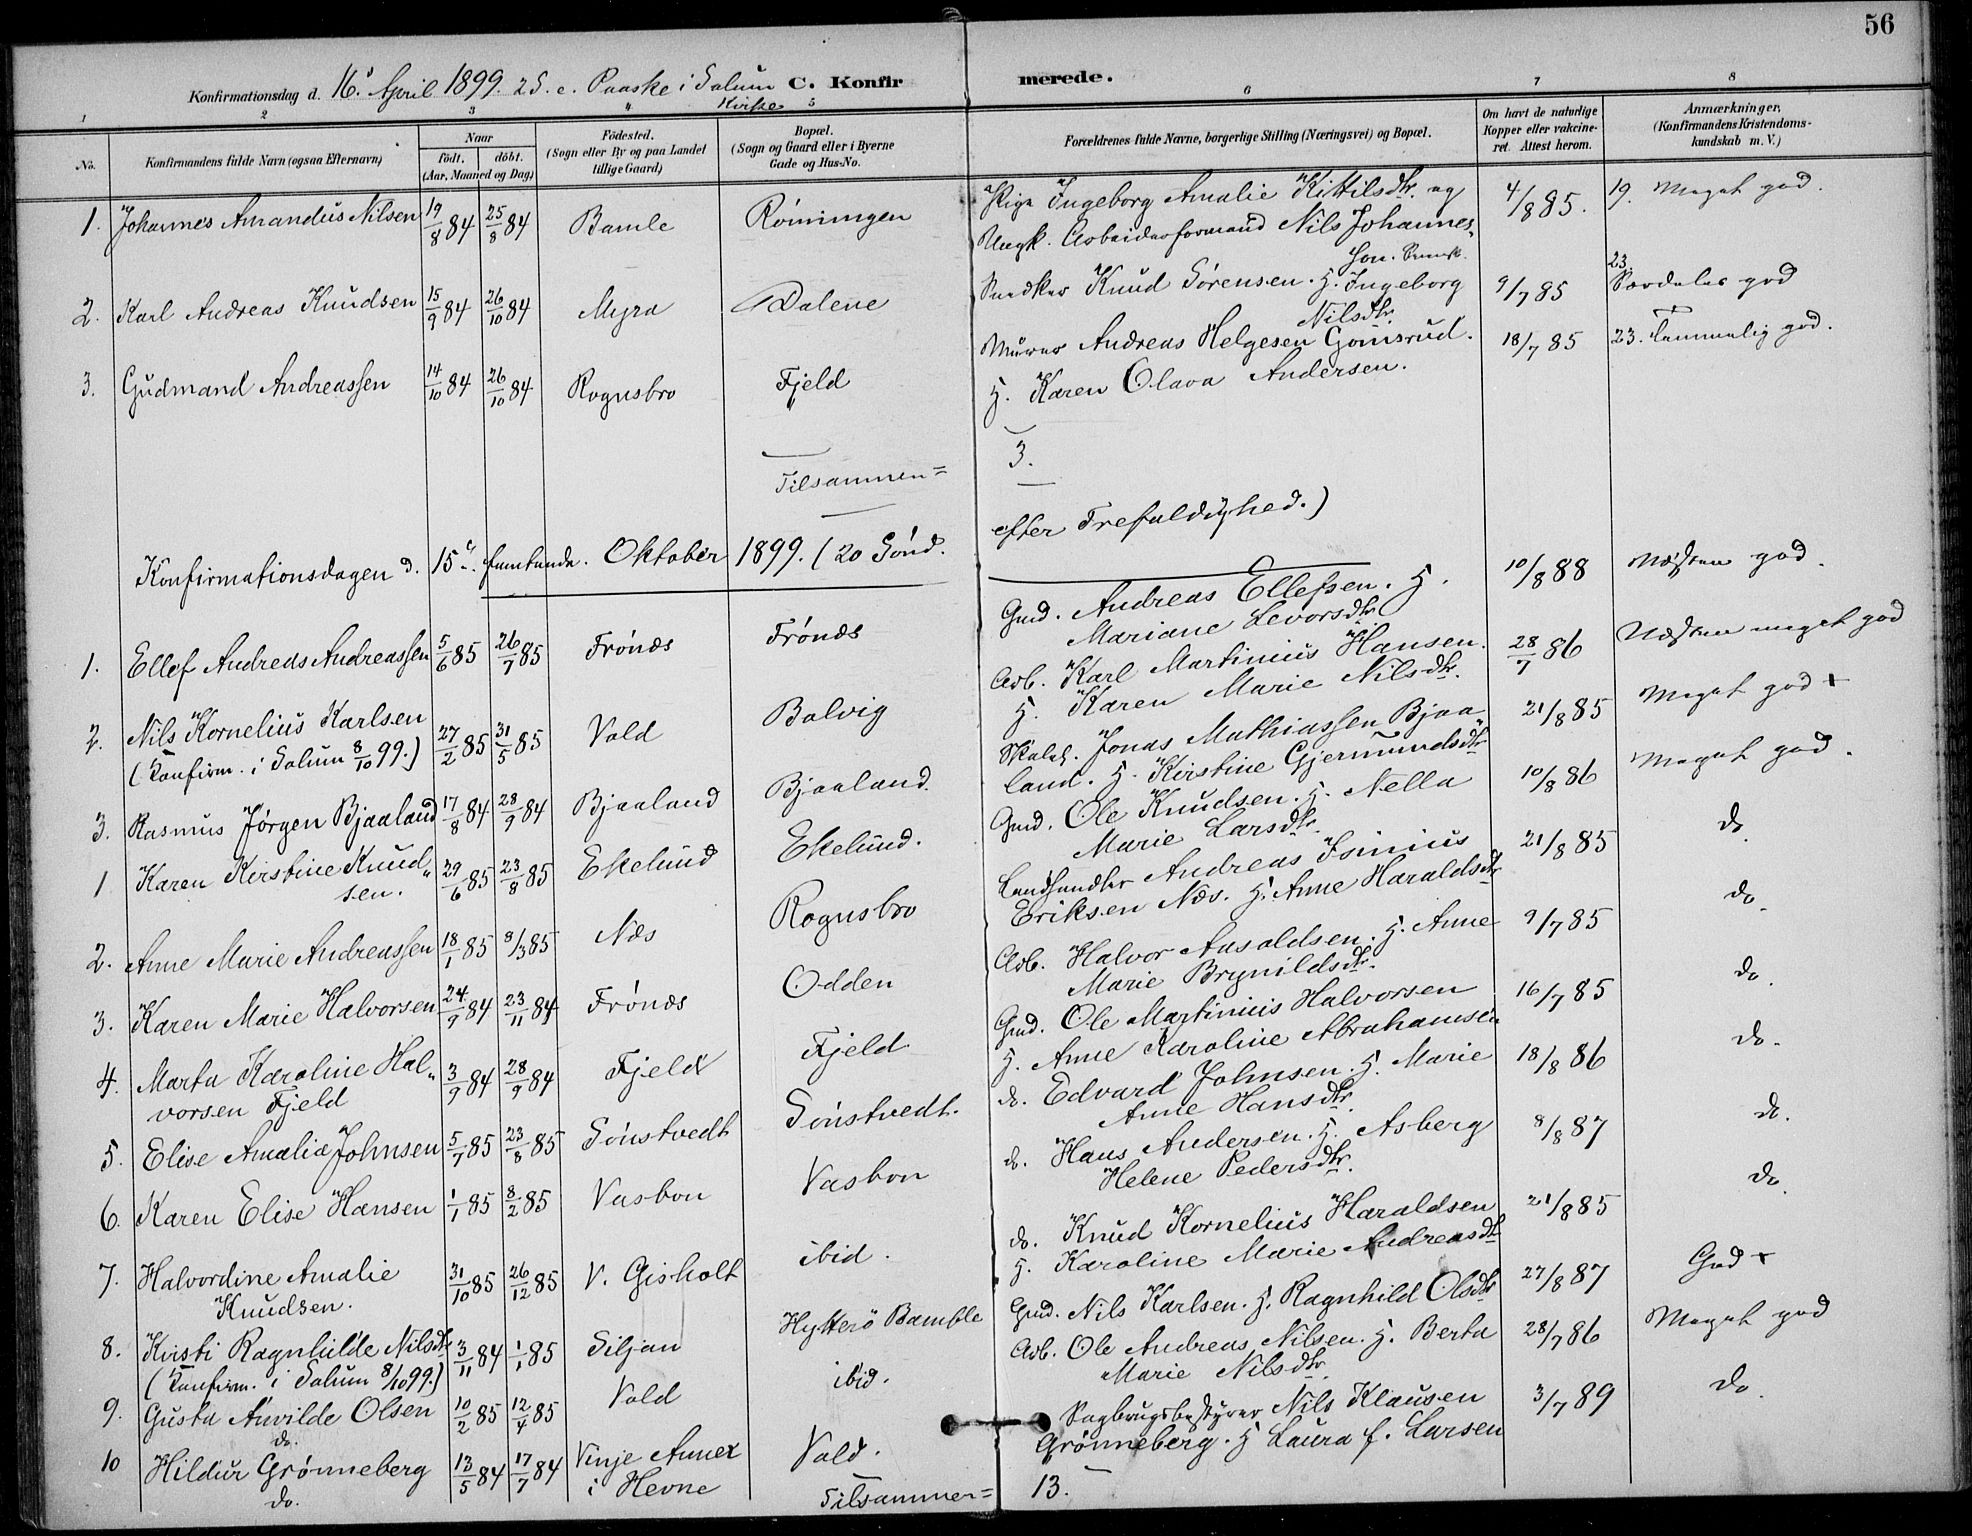 56
Konfirmationsdag d. 16d April 1899. 2 S. e. Paaske i Solum Kirke C. Konfirmerede.
1 2 3 4 5 6 7 8
No. Konfirmandens fulde Navn (ogsaa Efternavn) Naar født. døbt. (Aar, Maaned og Dag) Fødested. (Sogn eller By og paa Landet tillige Gaard) Bopæl. (Sogn og Gaard eller i Byerne Gade og Hus-No. Forældrenes fulde Navne, borgerlige Stilling (Næringsvei) og Bopæl. Om havt de naturlige Kopper eller vakcineret. Attest herom. Anmærkninger, (Konfirmandens Kristendomskundskab m. V.)
1. Johannes Amandus Nilsen 19/8 84 25/8 84 Bamle Röiningen Pige Ingeborg Amalie Kittilsdtr. og 4/8 85. 19. Meget god.
Ungk. Arbeiderformand Nils Johannes-
sen.
2. Karl Andreas Knudsen 15/9 84 26/10 84 Myra Dalene Snedker Knud Sörensen. H. Ingeborg 9/7 85 23 Særdeles god
Nilsdtr.
3. Gudmand Andreassen 14/10 84 26/10 84 Rognsbro Fjeld Murer Andreas Helgesen Gomsrud. 18/7 85 23. Temmelig god.
H. Karen Olava Andersen.
Tilsammen = 3.
Konfirmationsdagen d. 15de femtende. Oktober 1899. (20 Sönd. efter Trefoldighed.)
1. Ellef Andreas Andreassen 5/6 85 26/7 85 Frönæs Frönæs Gmd. Andreas Ellefsen. H. 10/8 88 Næsten god.
Mariane Levorsdtr.
2. Nils Kornelius Karlsen 27/2 85 31/5 85 Vold Bolvig Arb. Karl Martinius Hansen. 28/7 86 Næsten meget god
(Konfirm. i Solum 8/10 99.) H. Karen Marie Nilsdtr.
3. Rasmus Jörgen Bjaaland 17/8 84 28/9 84 Bjaaland Bjaaland. Jonas Mathiassen Bjaa- 21/8 85 Meget god +
land. H. Kirstine Gjermundsdtr
1 Karen Kirstine Knud- 29/6 85 23/8 85 Ekelund Ekelund. Gmd. Ole Knudsen. H. Nella 10/8 86 Meget god.
sen. Marie Larsdtr.
2. Anne Marie Andreassen 18/1 85 8/3 85 Næs Rognsbro Landhandler Andreas Isinius 21/8 85 do
Eriksen Næs. H. Anne Haraldsdtr
3. Karen Marie Halvorsen 24/9 84 23/11 84 Frönæs Odden Arb. Halvor Ansoldsen. H. Anne 9/7 85 do.
Marie Brynildsdtr.
4. Marta Karoline Hal- 3/9 84 28/9 84 Fjeld Fjeld Gmd. Ole Martinius Halvorsen 16/7 85 do.
vorsen Fjeld H. Anne Karoline Abrahamsen
5. Elise Amalie Johnsen 5/7 85 23/8 85 Sönstvedt Sönstvedt. do. Edvard Johnsen. H. Marie 18/8 86 do.
Anne Hansdtr.
6. Karen Elise Hansen 1/1 85 8/2 85 Vasbon Vasbon do. Hans Andersen. H. Asberg 8/8 87 do.
Helene Pedersdtr.
7. Halvordine Amalie 31/10 85 26/12 85 V. Gisholt ibid. do. Knud Kornelius Haraldsen 21/8 85 do.
Knudsen. H. Karoline Marie Andreasdtr
8. Kristi Ragnhilde Nilsdtr 3/11 84 1/1 85 Siljan Hytterö Bamble Gmd. Nils Karlsen. H. Ragnhild Olsdtr 27/8 87 God +
(Konfirm. i Solum 8/10 99.)
9. Gusta Anvilde Olsen 10/2 85 12/4 85 Vold ibid. Arb. Ole Andreas Nilsen. H. Berta 28/7 86 Meget god
do. Marie Nilsdtr.
10 Hildur Grönneberg 13/5 84 17/7 84 Vinje Annex Vold. Sagbrugsbestyrer Nils Klausen 3/7 89 do.
do. i Hevne Grönneberg. H Laura f. Larsen
Tilsammen = 13.